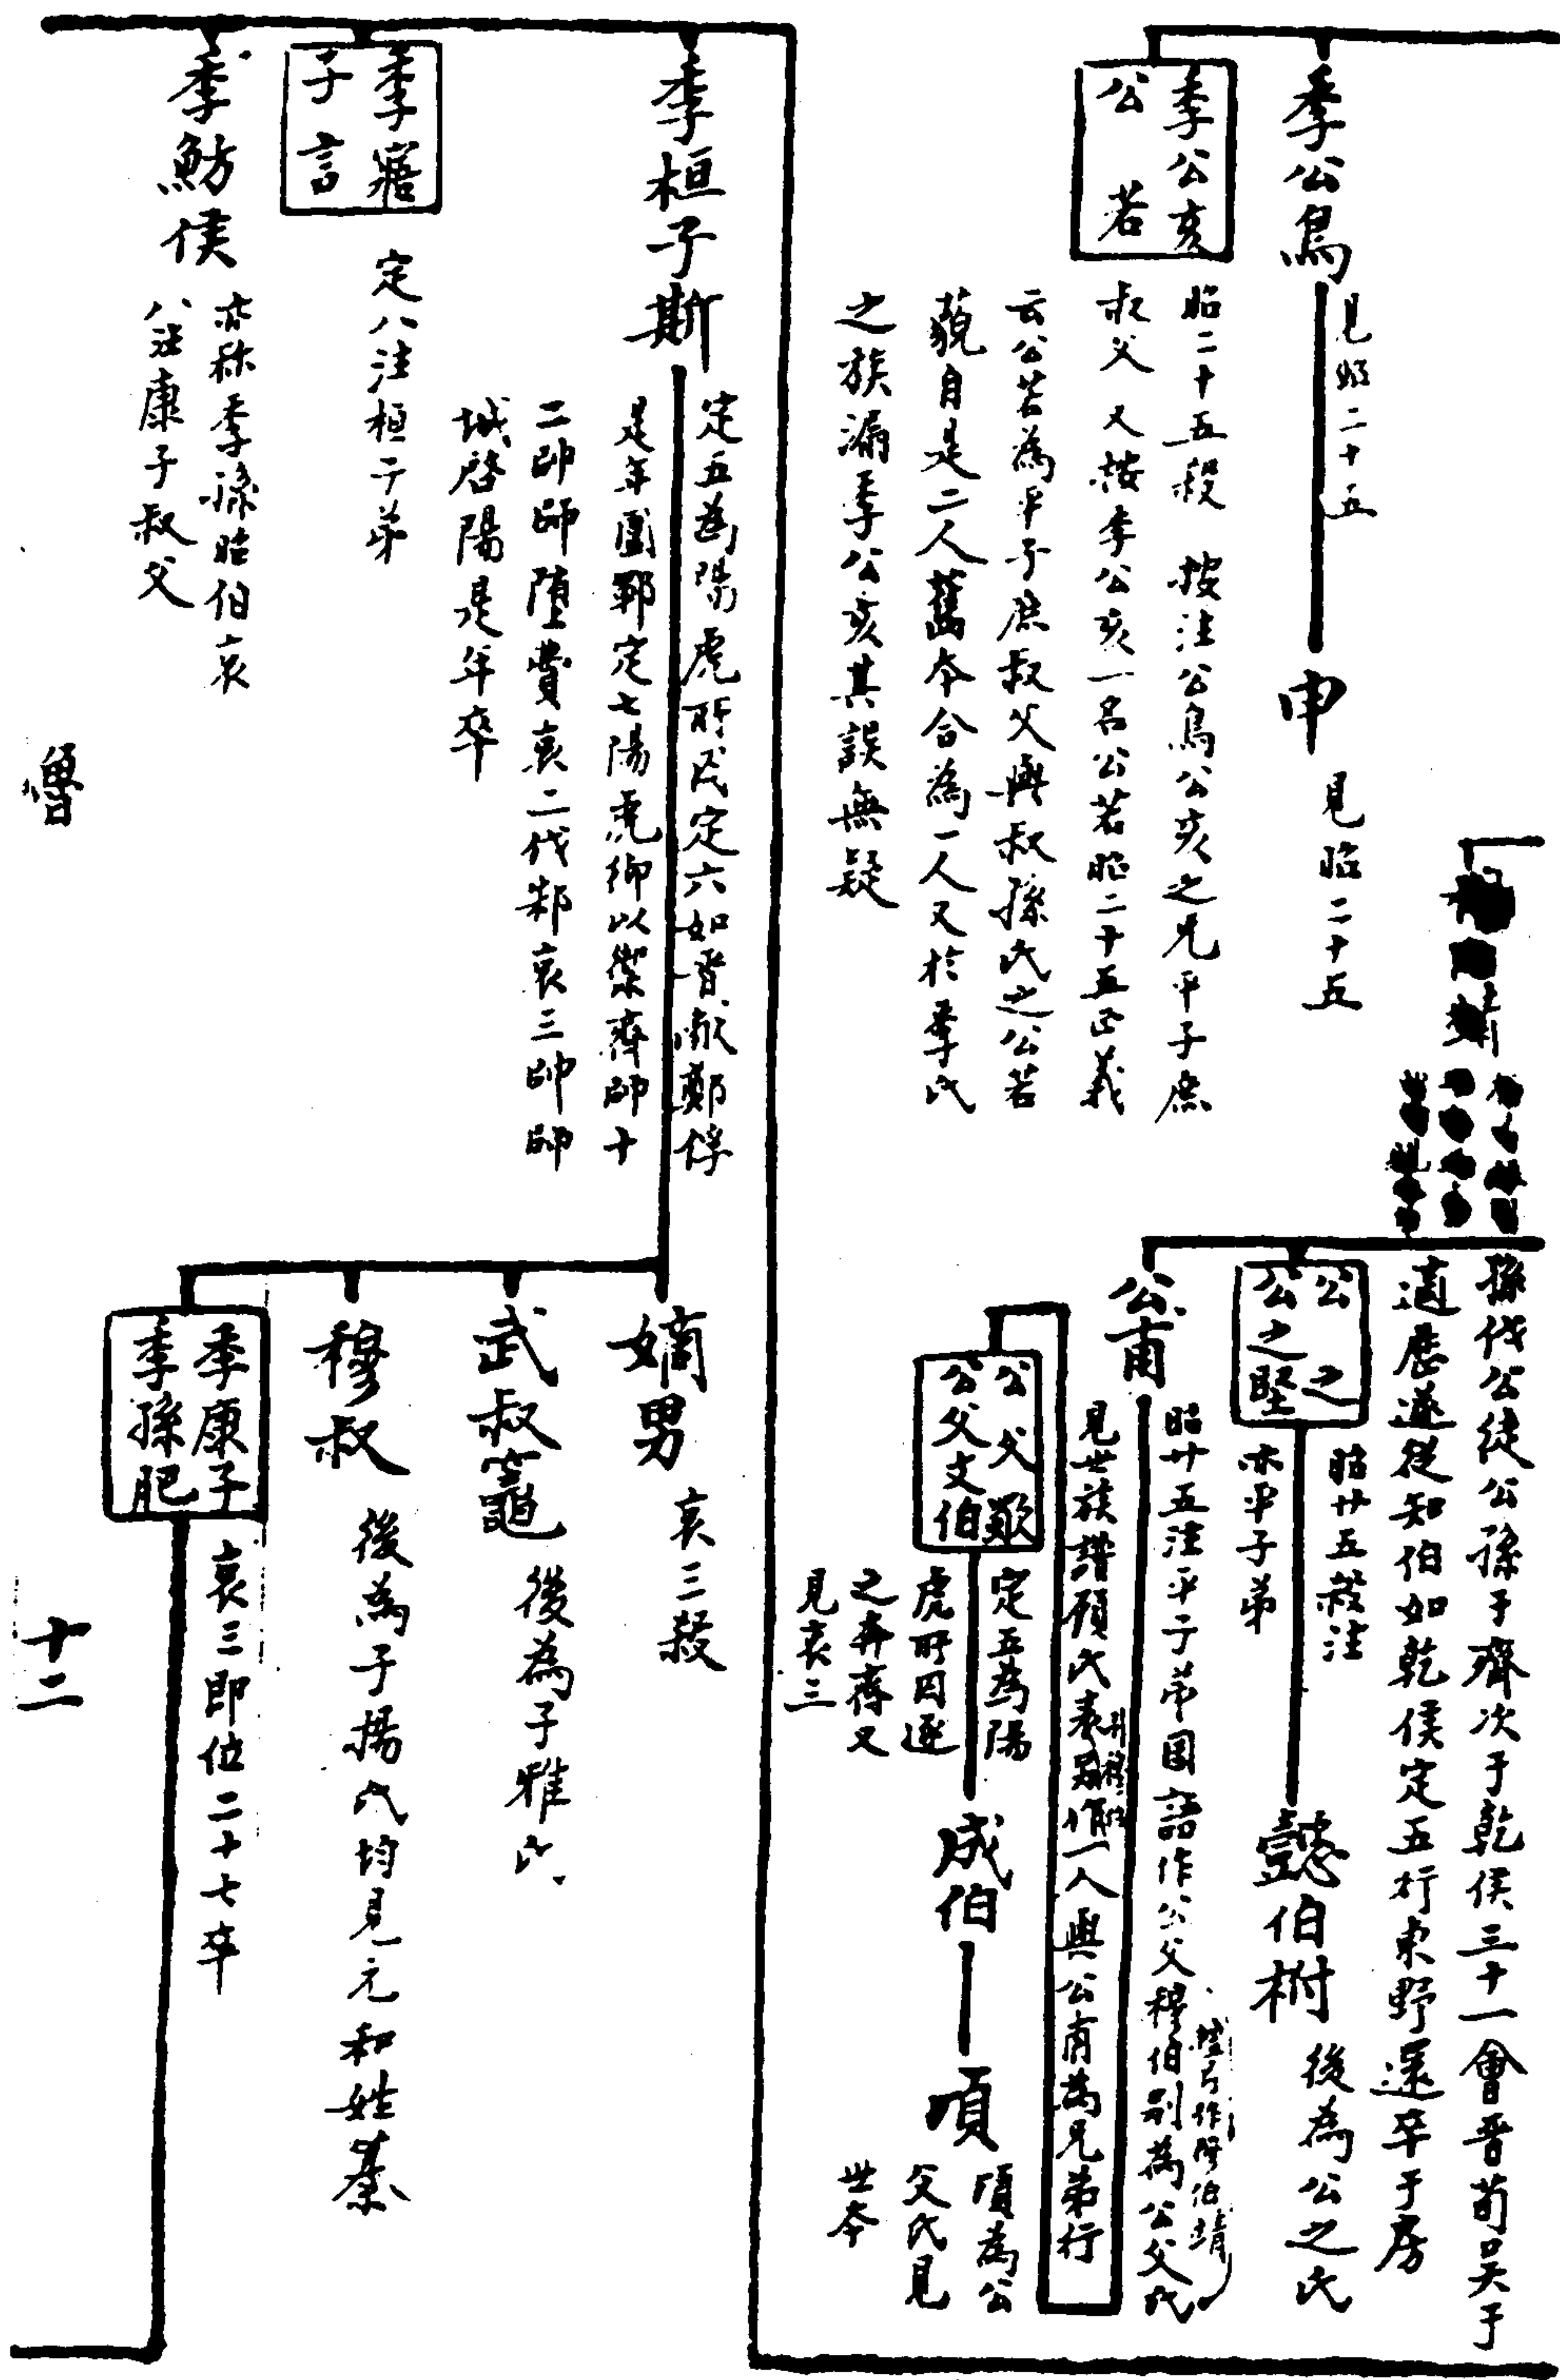 季公鳥
見昭二十五
申
見昭二十五
季公亥
公若
昭二十五殺 按注公鳥公亥之兄平子庶
叔父 又按季公亥一名公若昭二十五正義
云公若為平子庶叔父與叔孫氏之公若
藐自是二人舊本合為一人又於季氏
之族漏季公亥其誤無疑
孫伐公徒公孫于齊次于乾侯三十一會晉荀吴于
適歷遂從知伯如乾侯定五行東野還卒于房
公之
公之堅
昭廿五殺注
亦平子弟
懿伯柎
後為公之氏
公甫
昭廿五注平子弟国語作公父穆伯别為公父氏
見世族譜顧氏表
一人與公甫為兄弟行
公父歜
公父文伯
定五為陽
虎所囚逐
之奔齊又
見哀三
成伯
頃
頃為公
父氏見
世本
季桓子斯
定五為陽虎所囚定六如晋献鄭俘
是年圍鄆定七陽虎御以禦齊師十
二帥師墮費哀二伐邾哀三帥師
城啓陽是年卒
嫡男
哀三殺
武叔竈
後為子雅氏
穆叔
後為子揚氏均見元和姓纂
季康子
季孫肥
哀三即位二十七卒
季寤
子言
定八注桓子弟
季魴侯
亦称季孫昭伯哀
八注康子叔父
魯
十二